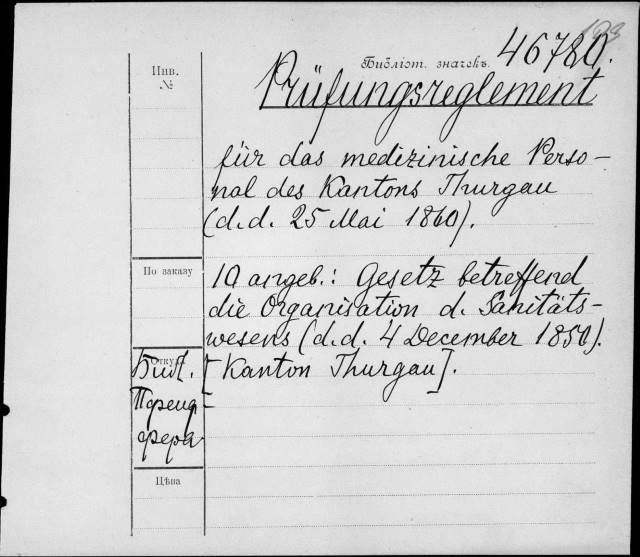 Библіот. значекъ. 46780.
Инв.
№
Prüfungsreglement
für das medizinische Perso-
nal des Kantons Thurgau
(d.d. 25 Mai 1860).
По заказу
10 angeb.: Gesetz betreffend
die Organisation d. Sanitäts-
wesens (d.d. 4 December 1850).
Откуда
Библ.
[Kanton Thurgau].
Пфейф-
фера
Цѣна